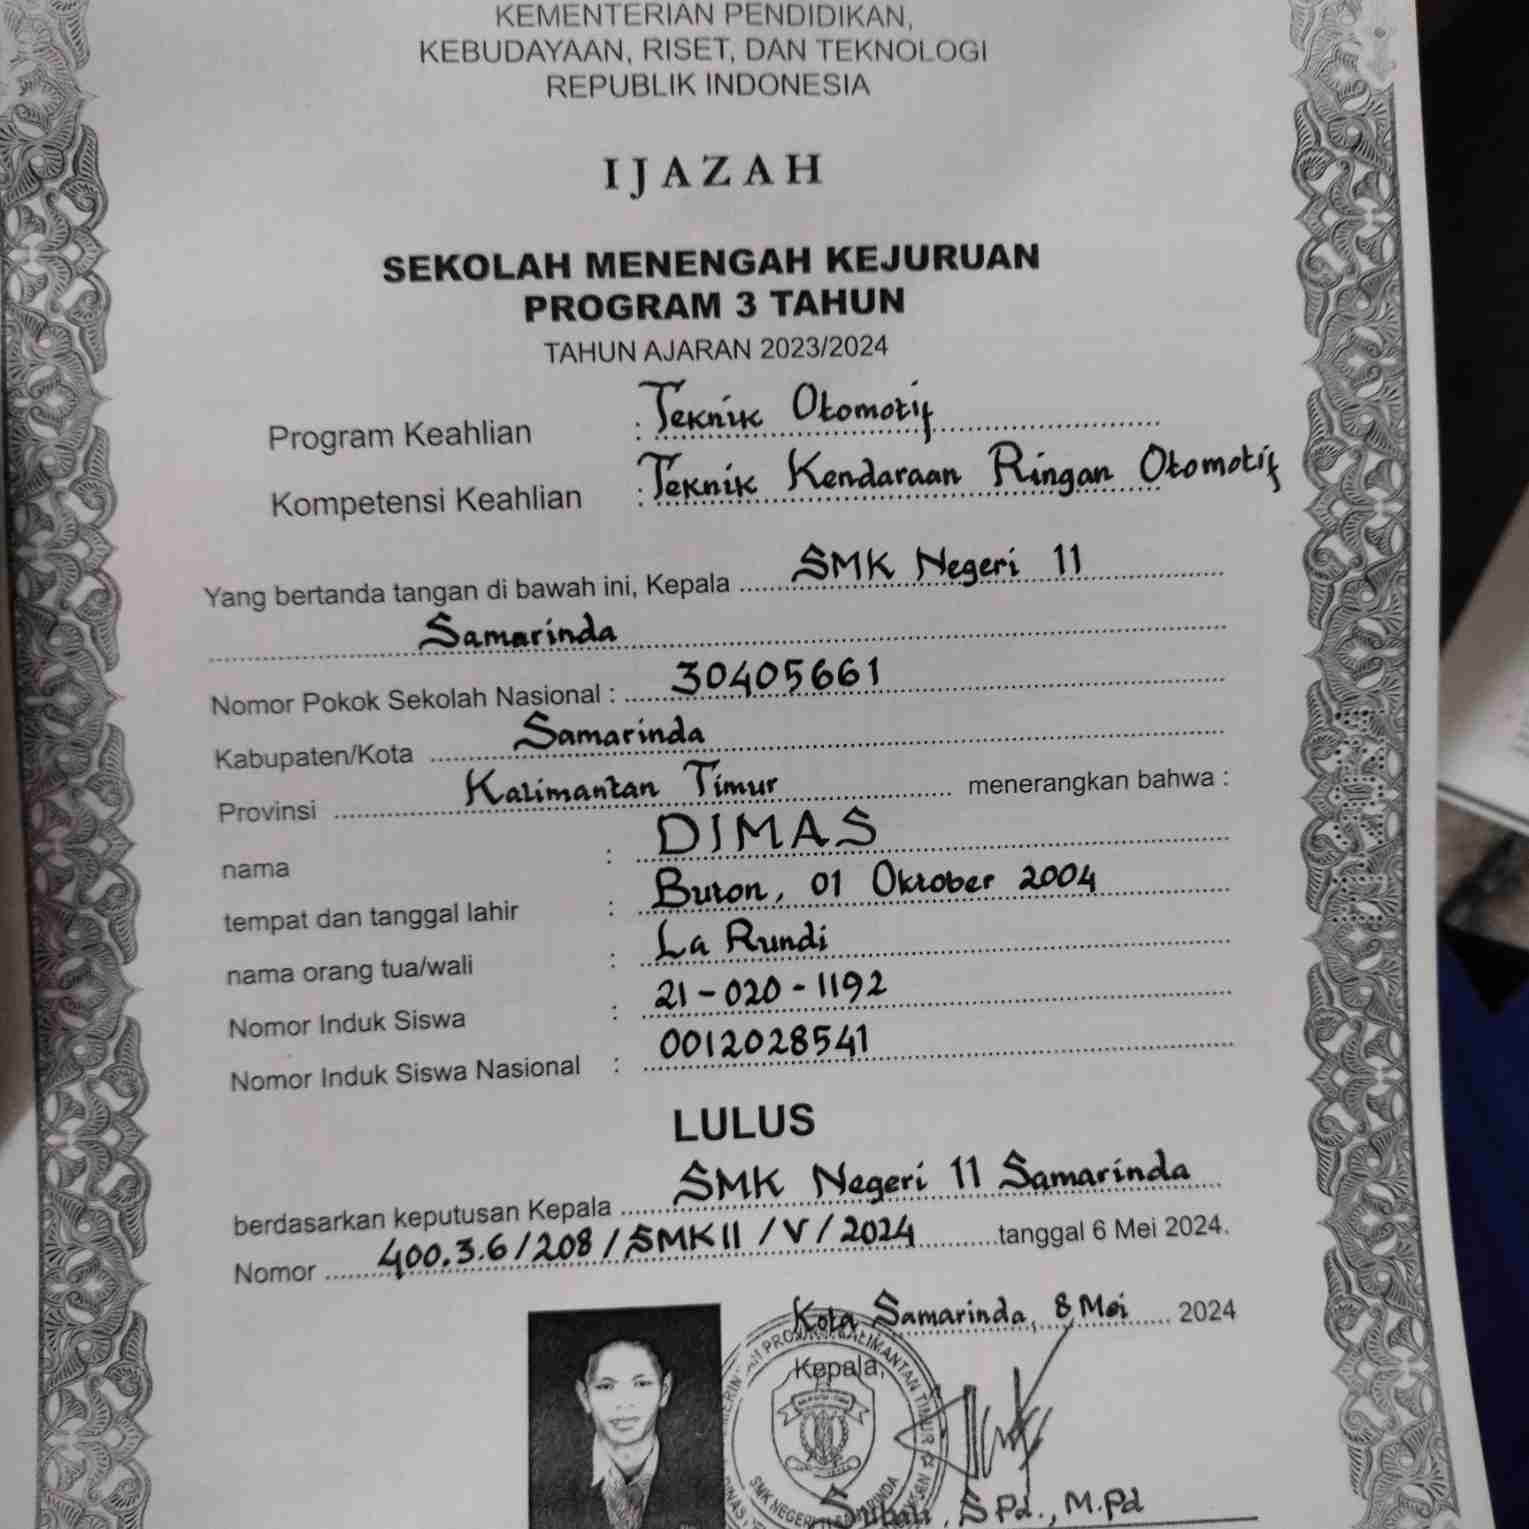 KEMENTERIAN PENDIDIKAN,
KEBUDAYAAN, RISET, DAN TEKNOLOGI
REPUBLIK INDONESIA
IJAZAH
SEKOLAH MENENGAH KEJURUAN
PROGRAM 3 TAHUN
TAHUN AJARAN 2023/2024
Program Keahlian : Teknik Otomotif
Kompetensi Keahlian : Teknik Kendaraan Ringan Otomotif
Yang bertanda tangan di bawah ini, Kepala SMK Negeri 11
Samarinda
Nomor Pokok Sekolah Nasional : 30405661
Kabupaten/Kota Samarinda
Provinsi Kalimantan Timur menerangkan bahwa :
nama : DIMAS
tempat dan tanggal lahir : Buton, 01 Oktober 2004
nama orang tua/wali : La Rundi
Nomor Induk Siswa : 21-020-1192
Nomor Induk Siswa Nasional : 0012028541
LULUS
berdasarkan keputusan Kepala SMK Negeri 11 Samarinda
Nomor 400.3.6/208/SMK11/V/2024 tanggal 6 Mei 2024.
Kota Samarinda, 8 Mei 2024
Kepala,
KALIMANTAN TIMUR
SMK NEGERI 11 SAMARINDA
Subali, S.Pd., M.Pd